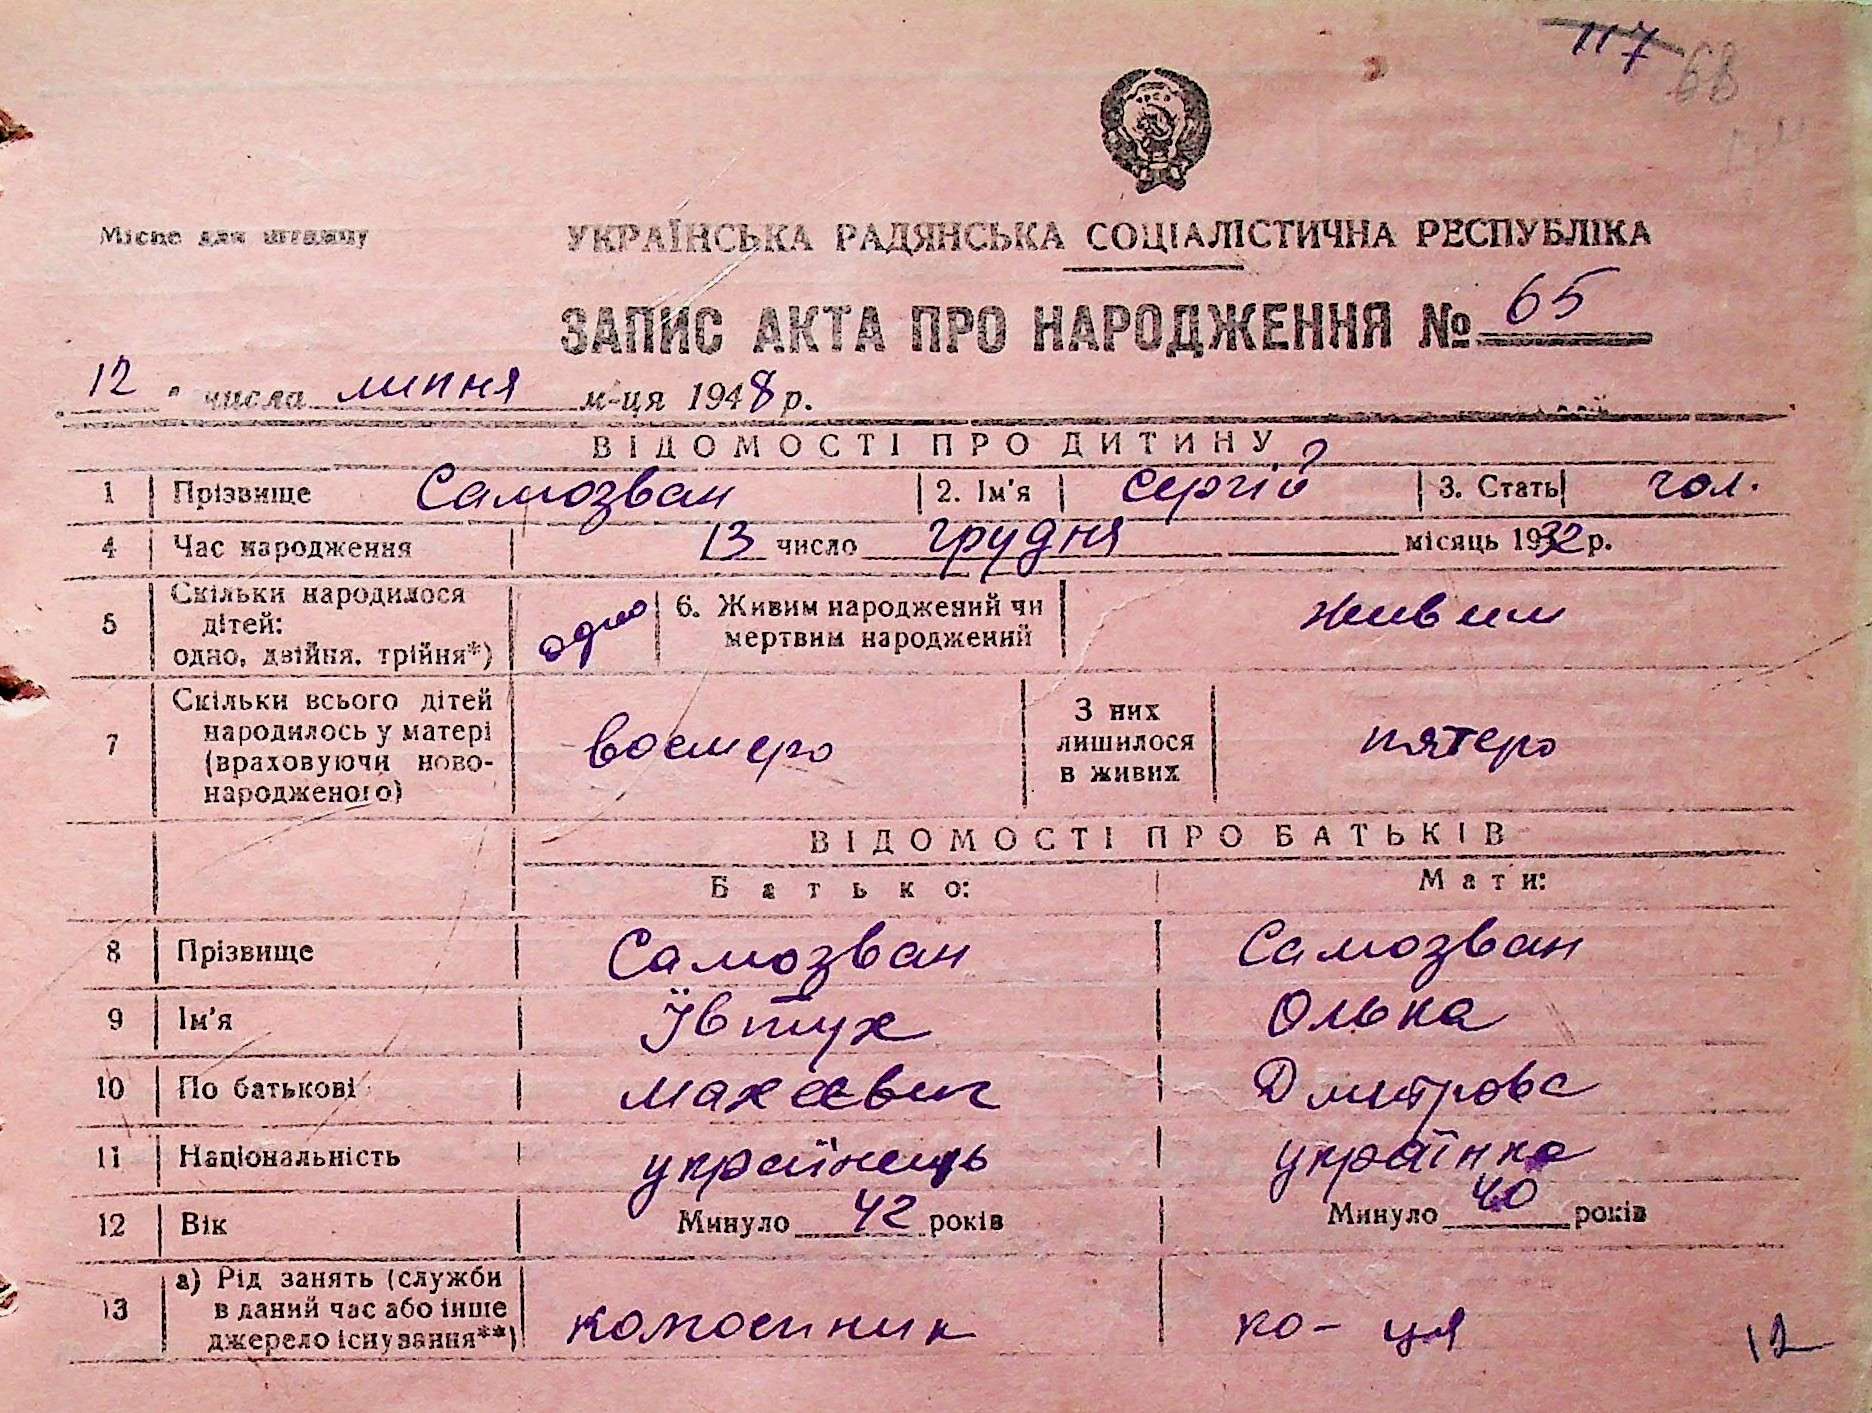 117 68
Місце для штампу
УКРАЇНСЬКА РАДЯНСЬКА СОЦІАЛІСТИЧНА РЕСПУБЛІКА
ЗАПИС АКТА ПРО НАРОДЖЕННЯ № 65
12 " числа липня м-ця 1948 р.
ВІДОМОСТІ ПРО ДИТИНУ
1 Прізвище Самозван 2. Ім'я Сергій 3. Стать чол.
4 Час народження 13 число грудня місяць 1932 р.
Скільки народилося
5 дітей: одно 6. Живим народжений чи живим
одно, двійня, трійня*) мертвим народжений
Скільки всього дітей
народилось у матері З них
7 (враховуючи ново- восмеро лишилося пятеро
народженого) в живих
ВІДОМОСТІ ПРО БАТЬКІВ
Батько: Мати:
8 Прізвище Самозван Самозван
9 Ім'я Ївтух Олька
10 По батькові Дмитрова
11 Національність українець українка
12 Вік Минуло 42 років Минуло 40 років
а) Рід занять (служби
13 в даний час або інше ко-ця
джерело існування**)
12